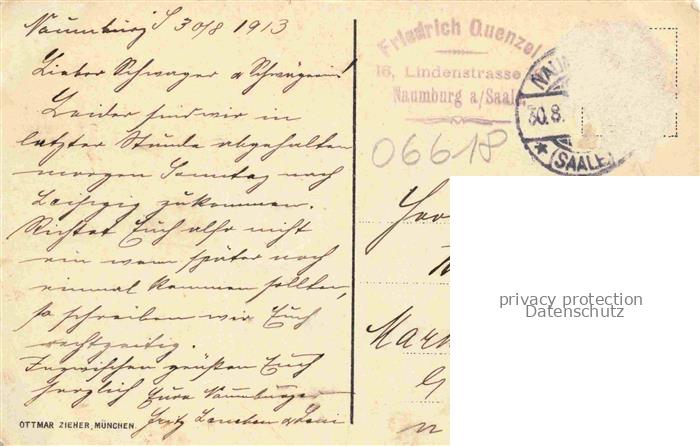 Naumburg S 30/8 1913
Lieber Schwager u Schwägerin!
Leider sind wir in
letzter Stunde abgehalten
morgen Sonntag nach
Leipzig zukommen.
Richtet Euch also nicht
ein wenn später noch
einmal kommen sollten,
so schreiben wir Euch
rechtzeitig.
Inzwischen grüßen Euch
herzlich Eure Naumburger
Fritz
OTTMAR ZIEHER, MÜNCHEN.
Friedrich Quenzel
16, Lindenstrasse
Naumburg a/Saale
NAUM
30.8.
* (SAALE)
06618
privacy protection
Datenschutz